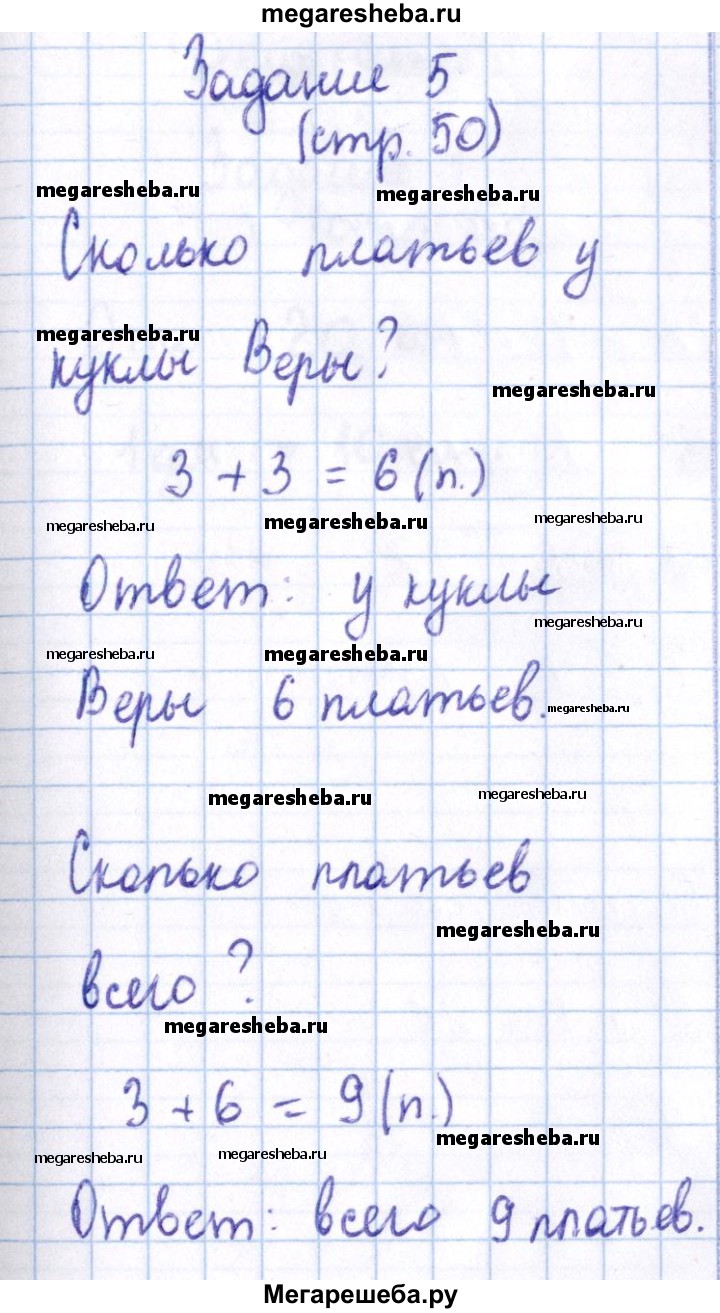 megaresheba.ru
Задание 5
(стр. 50)
megaresheba.ru megaresheba.ru
Сколько платьев у
megaresheba.ru
куклы Веры?
megaresheba.ru
3 + 3 = 6 (п.)
megaresheba.ru megaresheba.ru megaresheba.ru
Ответ: у куклы
megaresheba.ru
megaresheba.ru megaresheba.ru
Веры 6 платьев.
megaresheba.ru
megaresheba.ru megaresheba.ru
Сколько платьев
megaresheba.ru
всего?
megaresheba.ru
3 + 6 = 9 (п.)
megaresheba.ru
megaresheba.ru megaresheba.ru
Ответ: всего 9 платьев.
Мегарешеба.ру